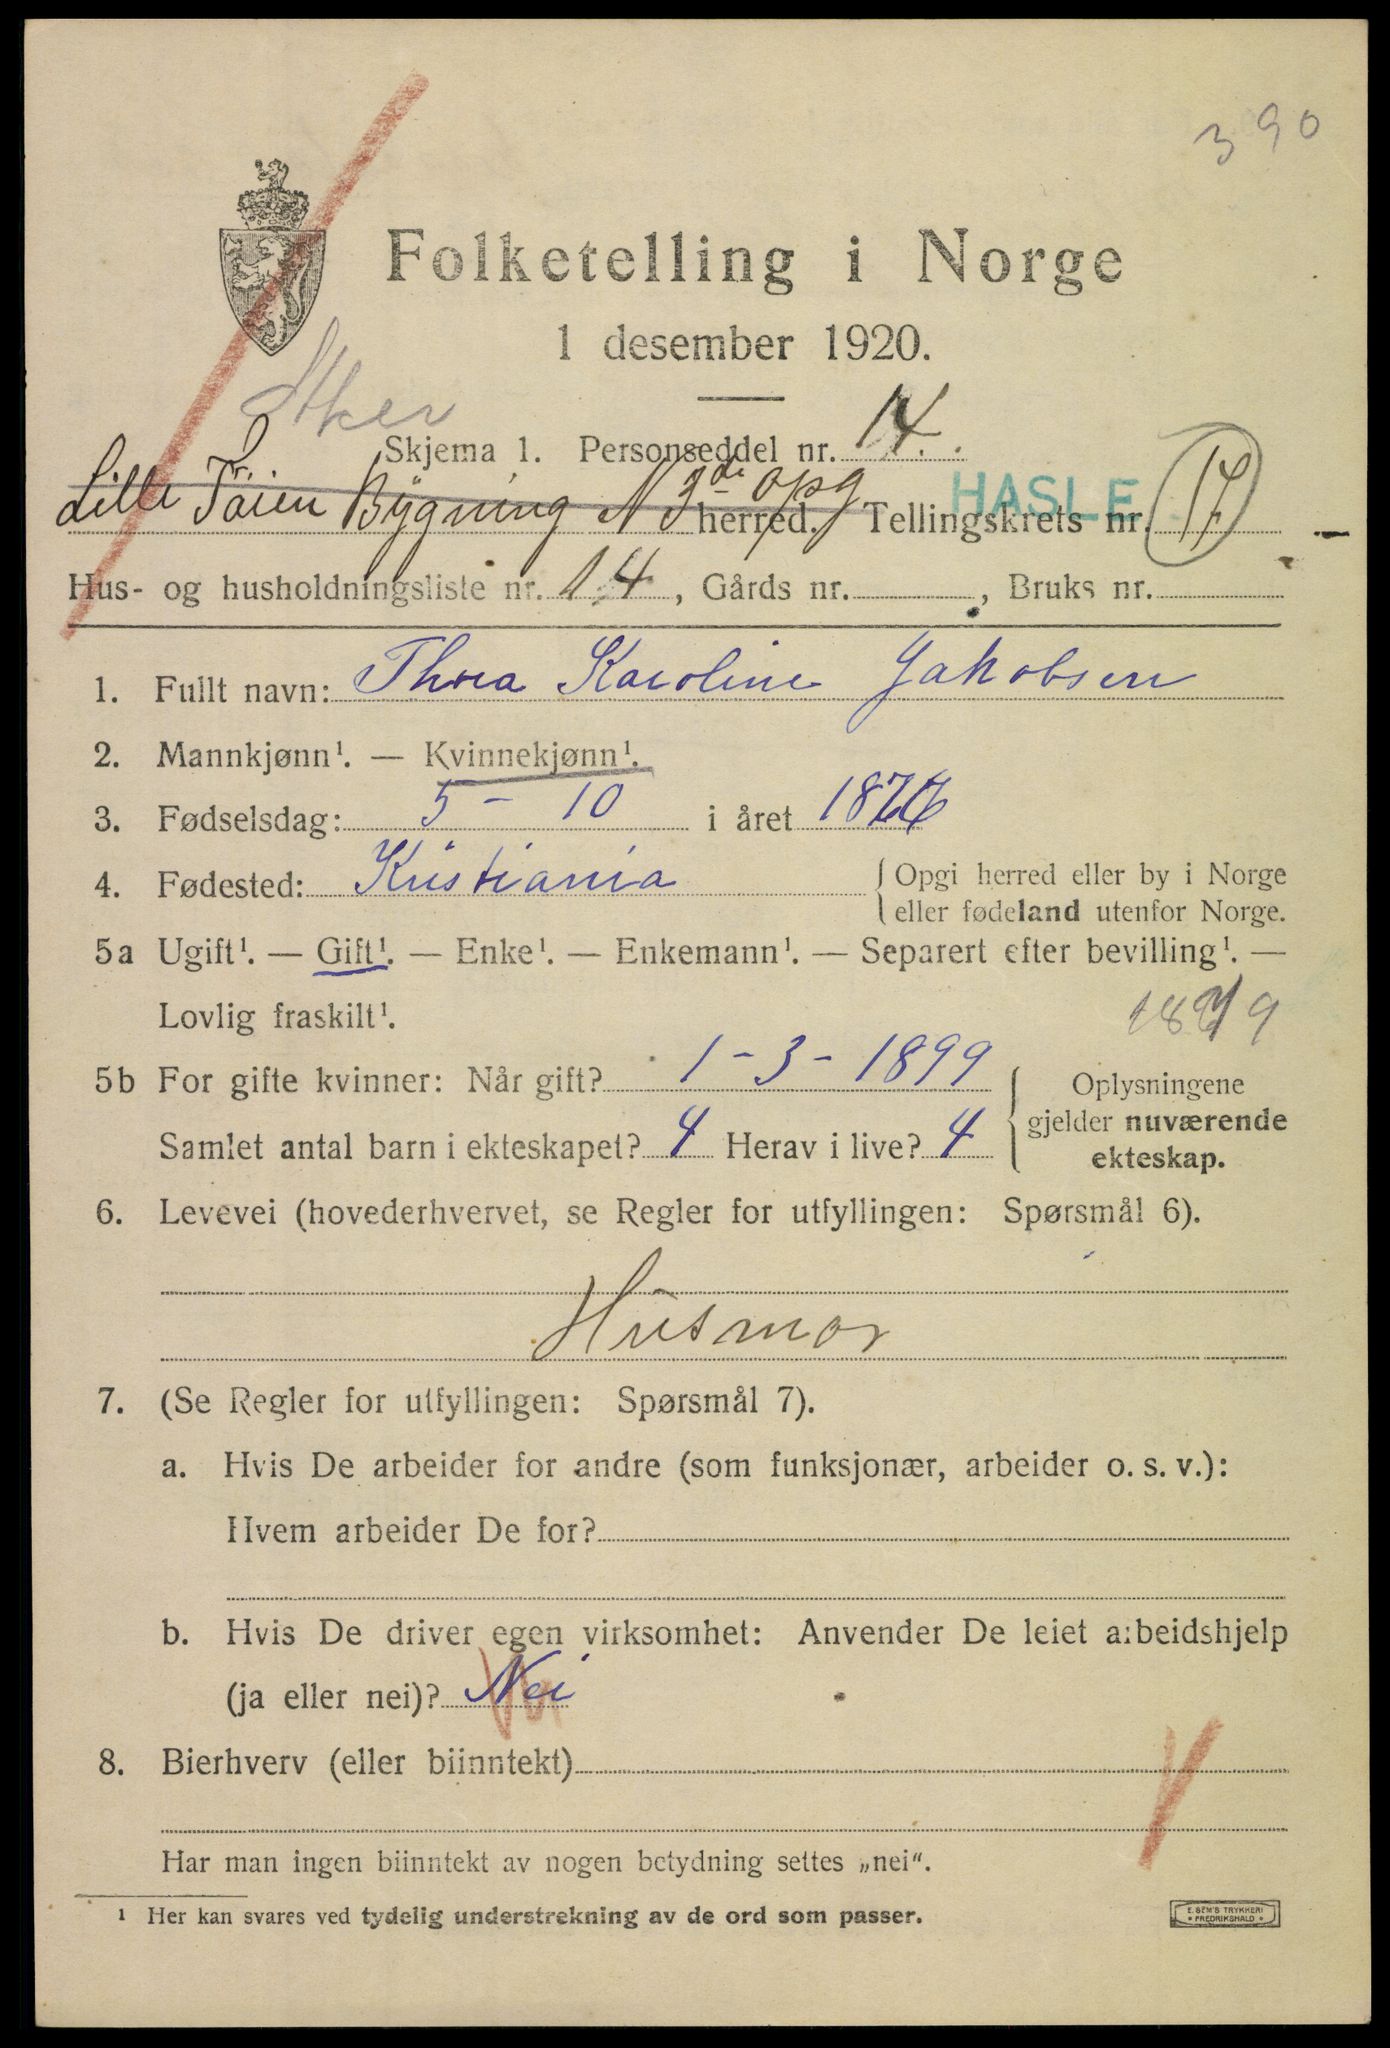 390
Folketelling i Norge
1 desember 1920.
Aker
Skjema 1. Personseddel nr. 14.
Lille Töien Bygning N 3 de opg herred. HASLE Tellingskrets nr. 17
Hus- og husholdningsliste nr. 14, Gårds nr. , Bruks nr.
1. Fullt navn: Thora Karoline Jakobsen
2. Mannkjønn¹. — Kvinnekjønn¹.
3. Fødselsdag: 5 - 10 i året
4. Fødested: Kristiania {Opgi herred eller by i Norge
eller fødeland utenfor Norge.
5a Ugift¹. — Gift¹. — Enke¹. — Enkemann¹. — Separert efter bevilling¹. —
Lovlig fraskilt¹.
5b For gifte kvinner: Når gift? 1 - 3 - 1899 Oplysningene
gjelder nuværende
Samlet antal barn i ekteskapet? 4 Herav i live? 4 ekteskap.
6. Levevei (hovederhvervet, se Regler for utfyllingen: Spørsmål 6).
Husmor
7. (Se Regler for utfyllingen: Spørsmål 7).
a. Hvis De arbeider for andre (som funksjonær, arbeider o. s. v.):
Hvem arbeider De for?
b. Hvis De driver egen virksomhet: Anvender De leiet arbeidshjelp
(ja eller nei)? Nei
8. Bierhverv (eller biinntekt)
Har man ingen biinntekt av nogen betydning settes „nei“.
¹ Her kan svares ved tydelig understrekning av de ord som passer.
E. SEM'S TRYKKERI
• FREDRIKSHALD •